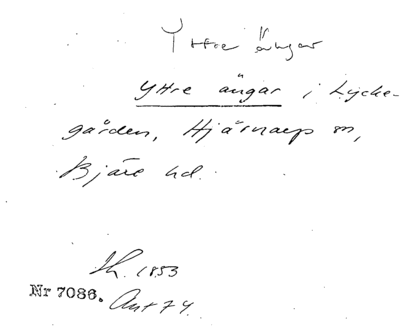 Yttre ängar
Yttre ängar i Lycke-
gården, Hjärnarp sn,
Bjäre hd.
Sk. 1853
Nr 7086. Ant 74.